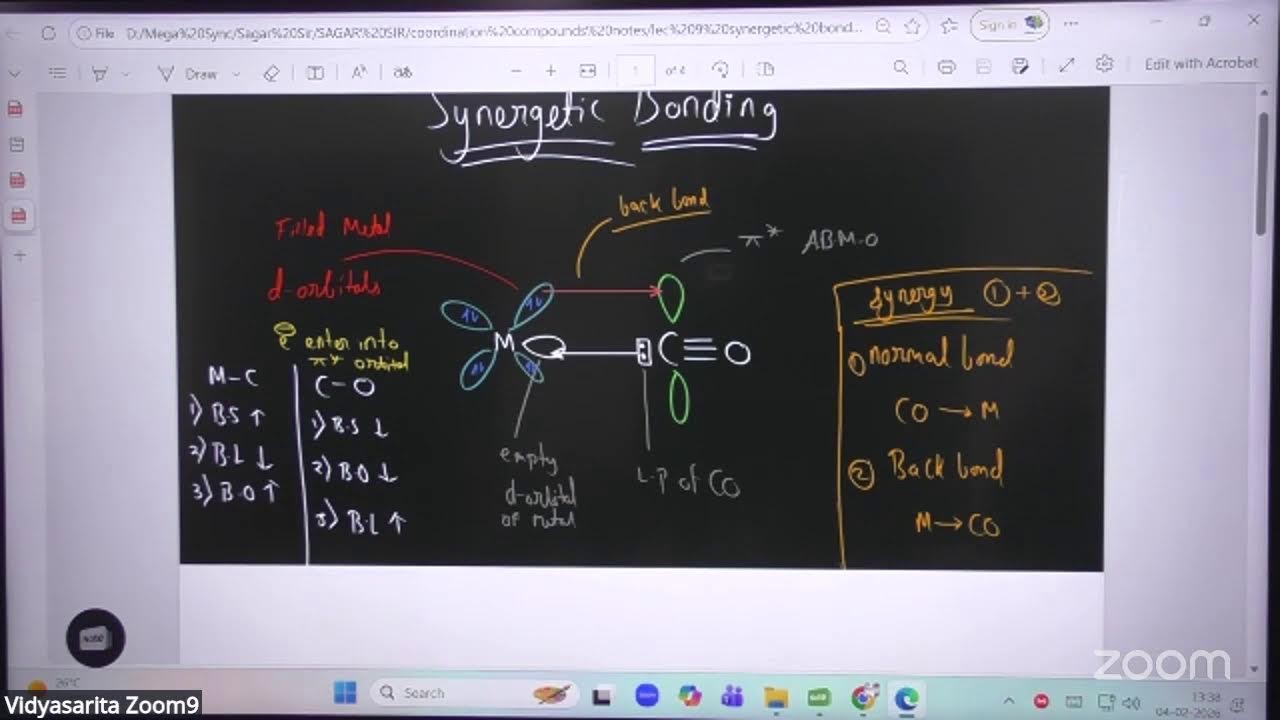 File
D:/Mega%20Sync/Sagar%20Sir/SAGAR%20SIR/coordination%20compounds%20notes/lec%209%20synergetic%20bond...
Sign in
Draw
1 of 4
Edit with Acrobat
Synergetic Bonding
back bond
Filled Metal
d-orbitals
π* ABM.O
1U 1U
1U 1U
M C≡O
e enter into
π* orbital
M-C
1) B.S ↑
2) B.L ↓
3) B.O ↑
C-O
1) B.S ↓
2) B.O ↓
3) B.L ↑
empty
d-orbital
of metal
L.P of CO
Synergy ① + ②
① normal bond
CO → M
② Back bond
M → CO
zoom
26°C
Search
13:38
04-02-2026
Vidyasarita Zoom9